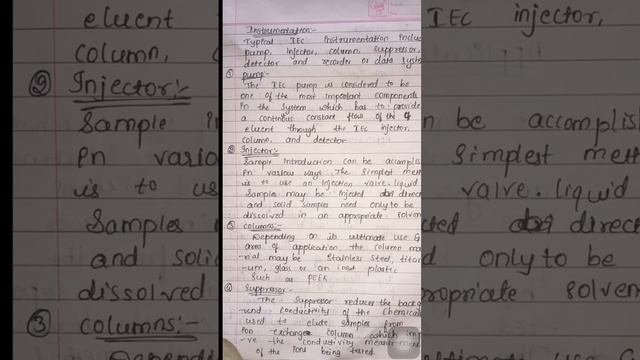 Instrumentation:-
Typical IEC Instrumentation includ
pump, injector, column, suppressor,
detector and recorder or data syste
① pump:-
The IEC pump is considered to be
one of the most important components
in the system which has to provide
a continous constant flow of the
eluent through the IEC injector,
column, and detector
② Injector:-
Sample Introduction can be accomplis
Pn various ways. The simplest meth
is to use an injection valve. liquid
Samples may be injected direct
and solid samples need only to be
dissolved in an appropriate solven
③ columns:-
Depending on its ultimate use &
area of application, the column ma
-rial may be Stainless Steel, titan
-ium, glass or an inert plastic
Such as PEEK
④ Suppressor:-
The Suppressor reduces the backg
-und Conductivity of the Chemicals
used to elute samples from
Pon exchange column which imp
-ve the conductivity measurement
of the Ions being tested.